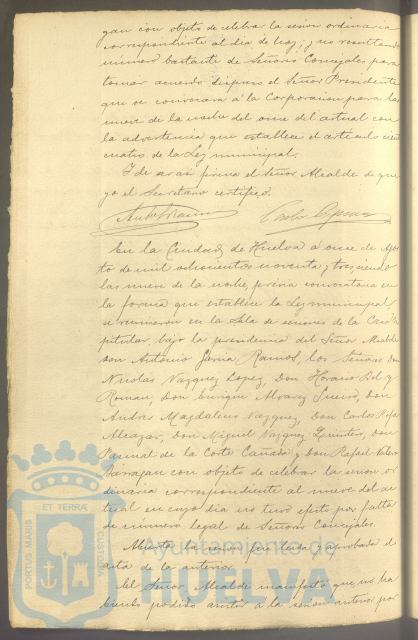 gan con objeto de celebrar la sesion ordinaria
correspondiente al dia de hoy, y no resultando
número bastante de Señores Concejales para
tomar acuerdo dispuso el Señor Presidente
que se convocara á la Corporacion para las
nueve de la noche del once del actual con
la advertencia que establece el artículo cien
cuatro de la Ley municipal.
Y de ser así firma el Señor Alcalde de que
yo el Secretario certifico.
En la Ciudad de Huelva á once de Agos
to de mil ochocientos noventa y tres, siendo
las nueve de la noche, previa convocatoria en
la forma que establece la Ley municipal
se reunieron en la Sala de sesiones de la Casa Ca
pitular, bajo la presidencia del Señor Alcalde
Don Antonio Garcia Ramos, los Señores Don
Nicolas Vazquez Lopez, Don Horacio Bel y
Roman, Don Enrique Alvarez, Don
Andres Magdaleno Vazquez, Don Carlos
Alcazar, Don Miguel Vazquez, Don
Pascual de la Corte Cañada y Don Rafael
Barrajan con objeto de celebrar la sesion or
dinaria correspondiente al nueve del ac
tual en cuyo dia no tuvo efecto por falta
de número legal de Señores Concejales.
Abierta la sesion fue leida y aprobada el
acta de la anterior.
El Señor Alcalde manifestó que no ha
biendo podido asistir á la sesion anterior por
PORTUS MARIS
ET TERRAE
CUSTODIA
Ayuntamiento de
HUELVA